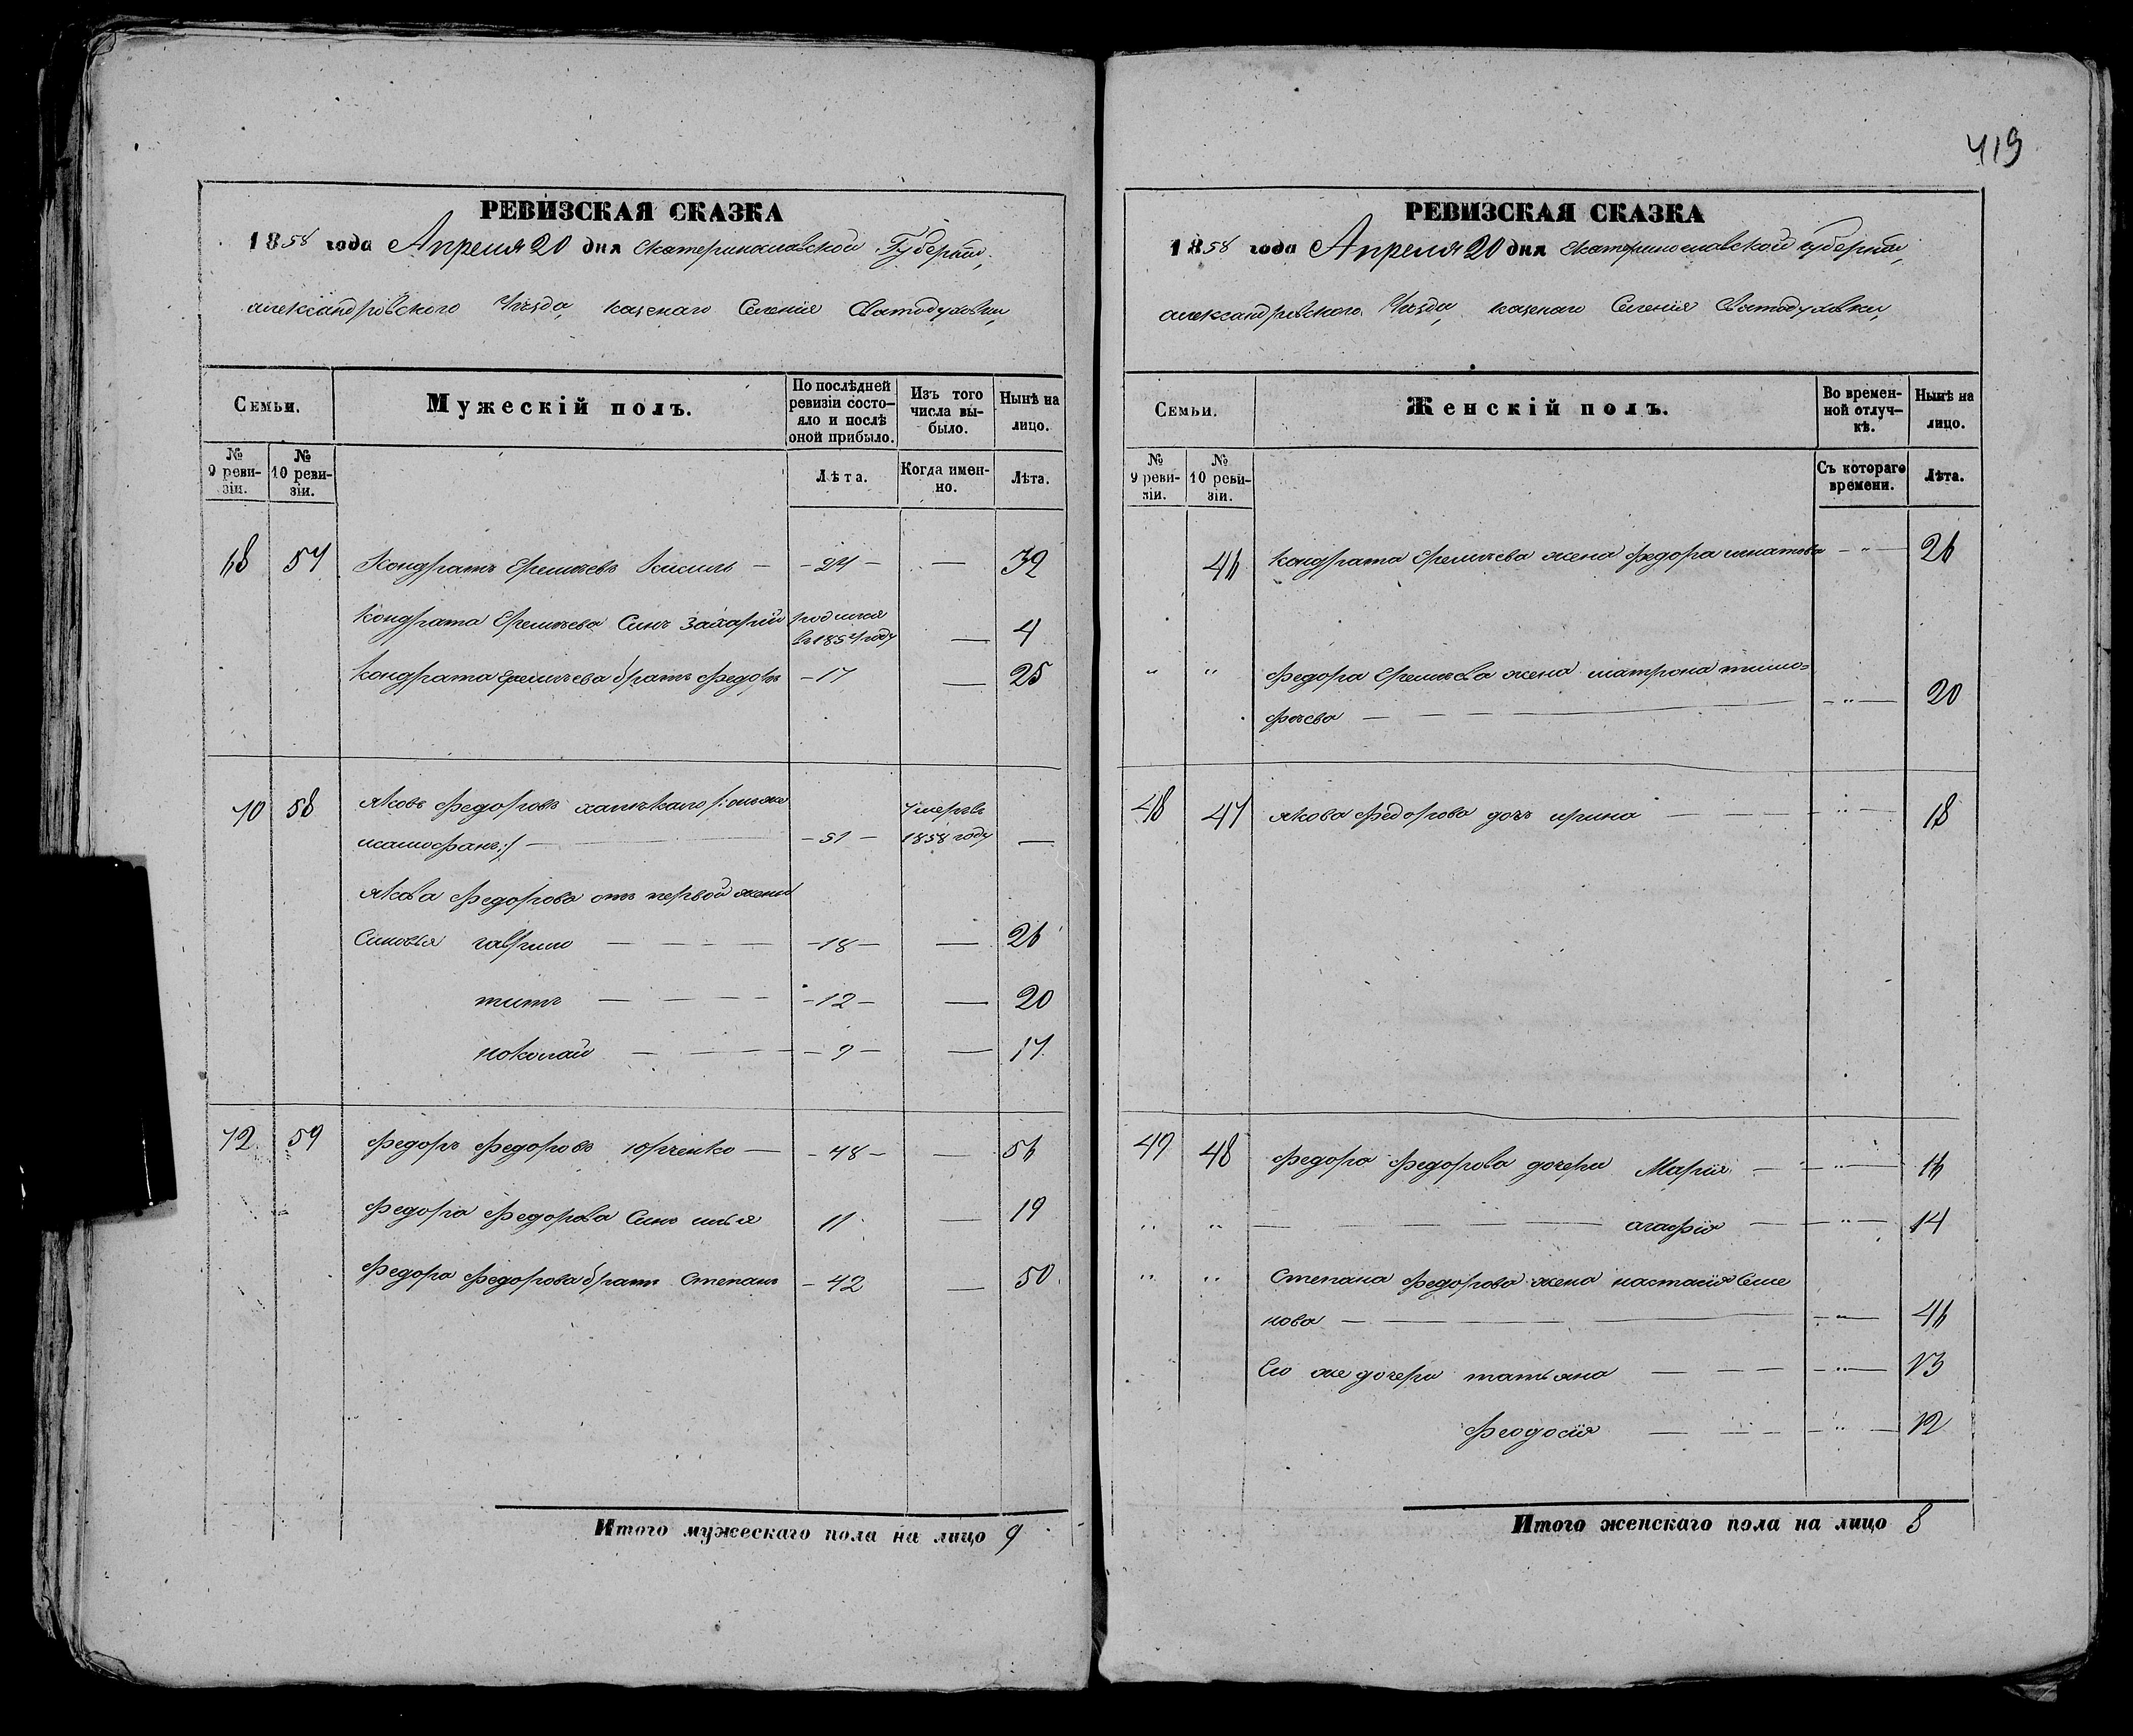 419
РЕВИЗСКАЯ СКАЗКА
1858 года Апреля 20 дня Екатеринославской Губерніи,
александровского Уѣзда, казенаго Селенія Святодуховки,
Семьи.
Мужескій полъ.
По послѣдней ревизіи состо-
яло и послѣ
оной прибыло.
Изъ того
числа вы-
было.
Нынѣ на
лицо.
№
9 реви-
зіи.
№
10 реви-
зіи.
Лѣта.
Когда имен-
но.
Лѣта.
68 57 Кондратъ Еремѣевъ Кисиль — 24 — — 32
Кондрата Еремѣева Синъ Захарій родился
въ 1854 году — 4
Кондрата Еремѣева братъ Федоръ — 17 — 25
70 58 Яковъ Федоровъ
— 51 — Умеръ въ
1858 году —
Якова Федорова отъ первой жени
Синовья гаврило — 18 — — 26
титъ — 12 — — 20
николай — 9 — — 17
72 59 Федоръ Федоровъ юрченко — 48 — — 56
Федора Федорова Синъ илья 11 — 19
Федора Федорова братъ Степанъ — 42 — 50
Итого мужескаго пола на лицо 9
РЕВИЗСКАЯ СКАЗКА
1858 года Апреля 20 дня Екатеринославской губерніи,
александровского Уѣзда, казенаго Селенія Святодуховки,
Семьи.
Женскій полъ.
Во времен-
ной отлуч-
кѣ.
Нынѣ на
лицо.
№
9 реви-
зіи.
№
10 реви-
зіи.
Съ котораго
времени.
Лѣта.
46 Кондрата Еремѣева жена федора игнатова — " — 26
" " Федора Еремѣева жена матрона тимо-
фѣева — " — 20
48 47 Якова Федорова дочъ ирина — " — 18
49 48 Федора Федорова дочери Марія — " — 16
" " — агафія — " — 14
" " Степана Федорова жена настасія Семе
нова — " — 46
Его же дочери татьяна — " — 13
Феодосія — " — 12
Итого женскаго пола на лицо 8